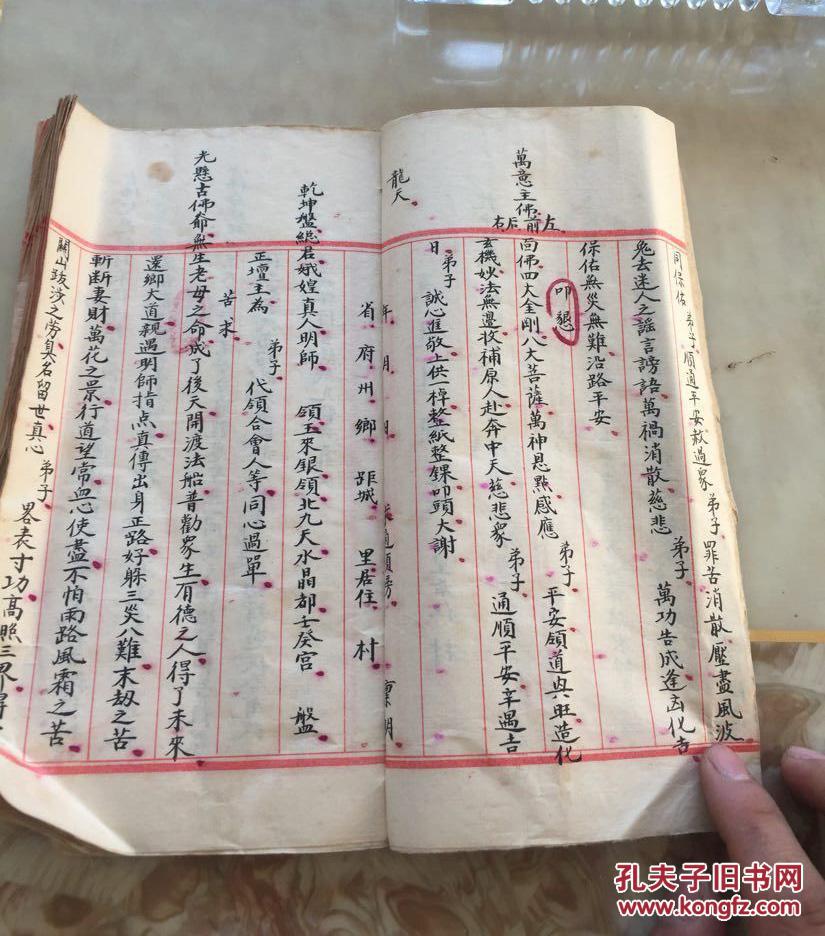 同保佑 弟子順通平安 救過眾 弟子罪苦消散壓盡風波
兔去迷人之謡言謗語萬禍消散慈悲 弟子 萬功告成逢凶化吉
保佑無災無難沿路平安
叩懇
萬意主佛前 左后右 面佛四大金剛八大菩薩萬神恩點感應 弟子 平安領道與旺造化
玄機妙法無邊收補原人赴奔中天慈悲眾 弟子 通順平安辛遇吉
日 弟子 誠心進敬上供一棹整紙整錁叩頭大謝
龍天
年 月 日
省 府 州 鄉 距城 里居住 村
乾坤盤總君娥媓真人明師 領玉來銀領北九天水晶都壬癸宮 盤
正壇主為 弟子 代領合會人等同心過單
苦求
光懸古佛爺無生老母之命成了後天開渡法船普勸眾生有德之人得了未來
還鄉大道親遇明師指点真傳出身正路好躲三災八難末劫之苦
斬断妻財萬花之景行道望常血心使盡不怕雨路風霜之苦
關山跋涉之劳臭名留世真心 弟子 畧表寸功高照三界
孔夫子旧书网
www.kongfz.com